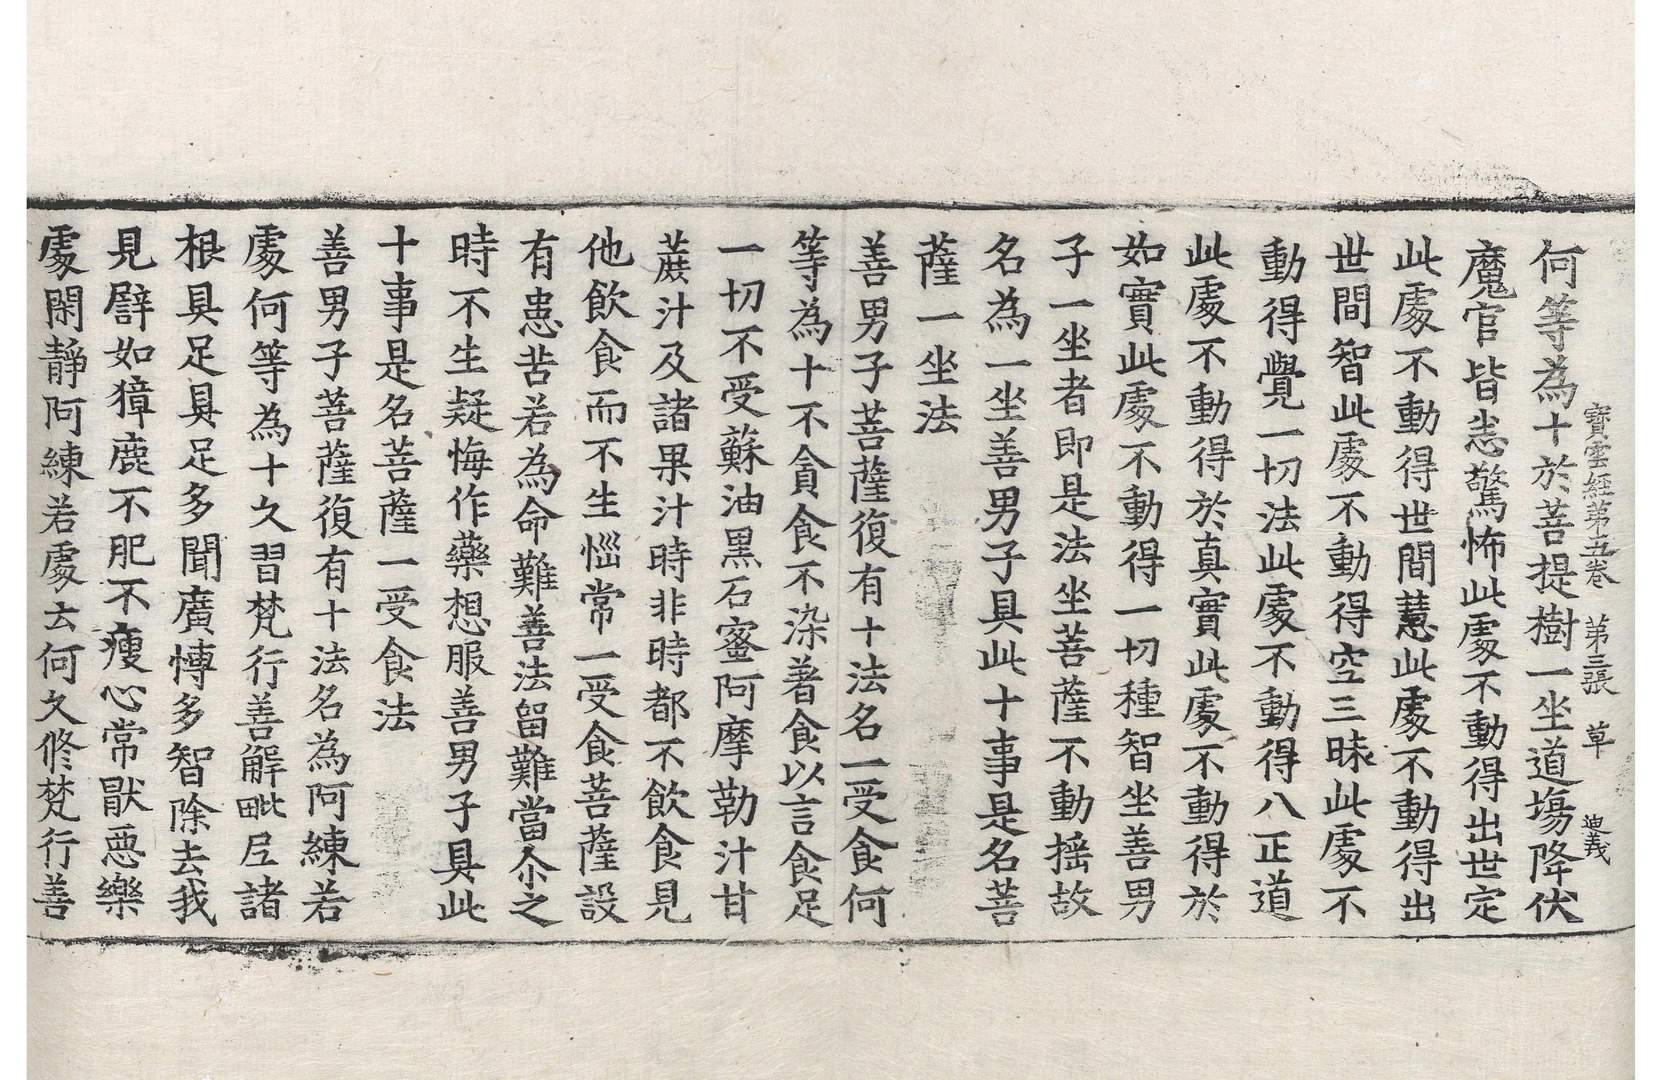 寶雲經第五卷 第三張 草 迪義
何等為十於菩提樹一坐道塲降伏
魔官皆恙驚怖此處不動得出世定
此處不動得世間慧此處不動得出
世間智此處不動得空三昧此處不
動得覺一切法此處不動得八正道
此處不動得於真實此處不動得於
如實此處不動得一切種智坐善男
子一坐者即是法坐菩薩不動揺故
名為一坐善男子具此十事是名菩
薩一坐法
善男子菩薩復有十法名一受食何
等為十不貪食不染著食以言食足
一切不受蘇油黒石蜜阿摩勒汁甘
蔗汁及諸果汁時非時都不飲食見
他飲食而不生惱常一受食菩薩設
有患苦若為命難善法留難當尒之
時不生疑悔作藥想服善男子具此
十事是名菩薩一受食法
善男子菩薩復有十法名為阿練若
處何等為十久習梵行善解毗尼諸
根具足具足多聞廣慱多智除去我
見譬如獐鹿不肥不瘦心常猒惡樂
處閑静阿練若處云何久修梵行善